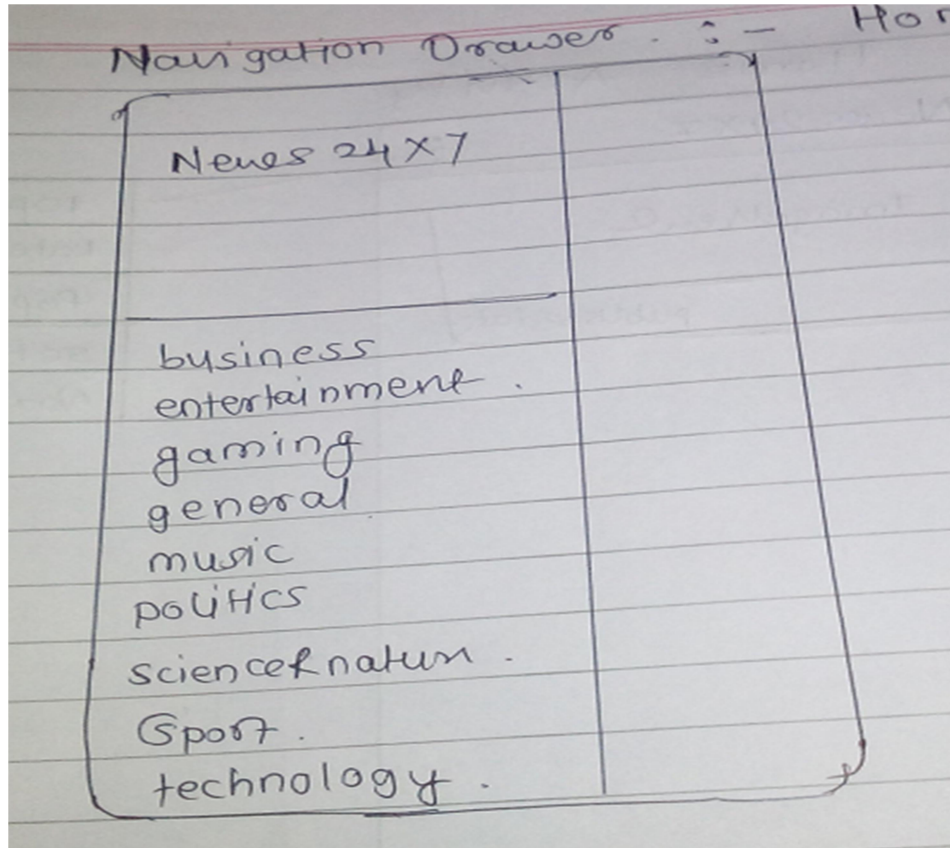 Navigation Drawer. :- Hor
News 24x7
business
entertainment.
gaming
general
music
politics
science&nature.
Sport.
technology.